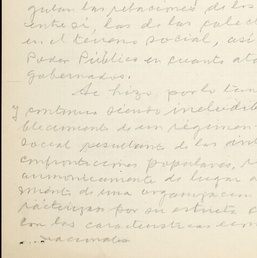 gulan las relaciones de los
entre sí, las de las colect
en el terreno social, así
Poder Público en cuanto ata
gobernados.
Se hizo, por lo tan
y continua siendo ineludible
blecimiento de un régimen
social resultante de las
confrontaciones populares,
armónicamente de lugar a
mento de una organización
por su estructura
con las características
nacionales